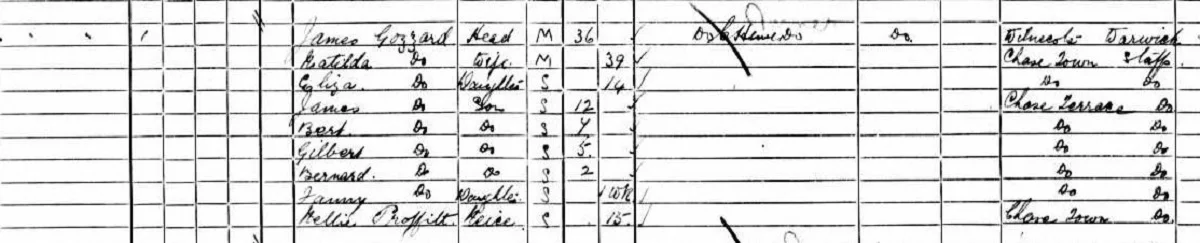 James Gozzard Head M 36 Do Do Warwick
Matilda Do Wife M 39 Chase Town Staffs
Eliza Do Daughter S 14 Do Do
James Do Son S 12 Chase Terrace Do
Bert Do Do S Do Do
Gilbert Do Do S 5 Do Do
Bernard Do Do S 2 Do Do
Fanny Do Daughter S Do Do
Nellie Proffitt Neice S 15 Chase Town Do